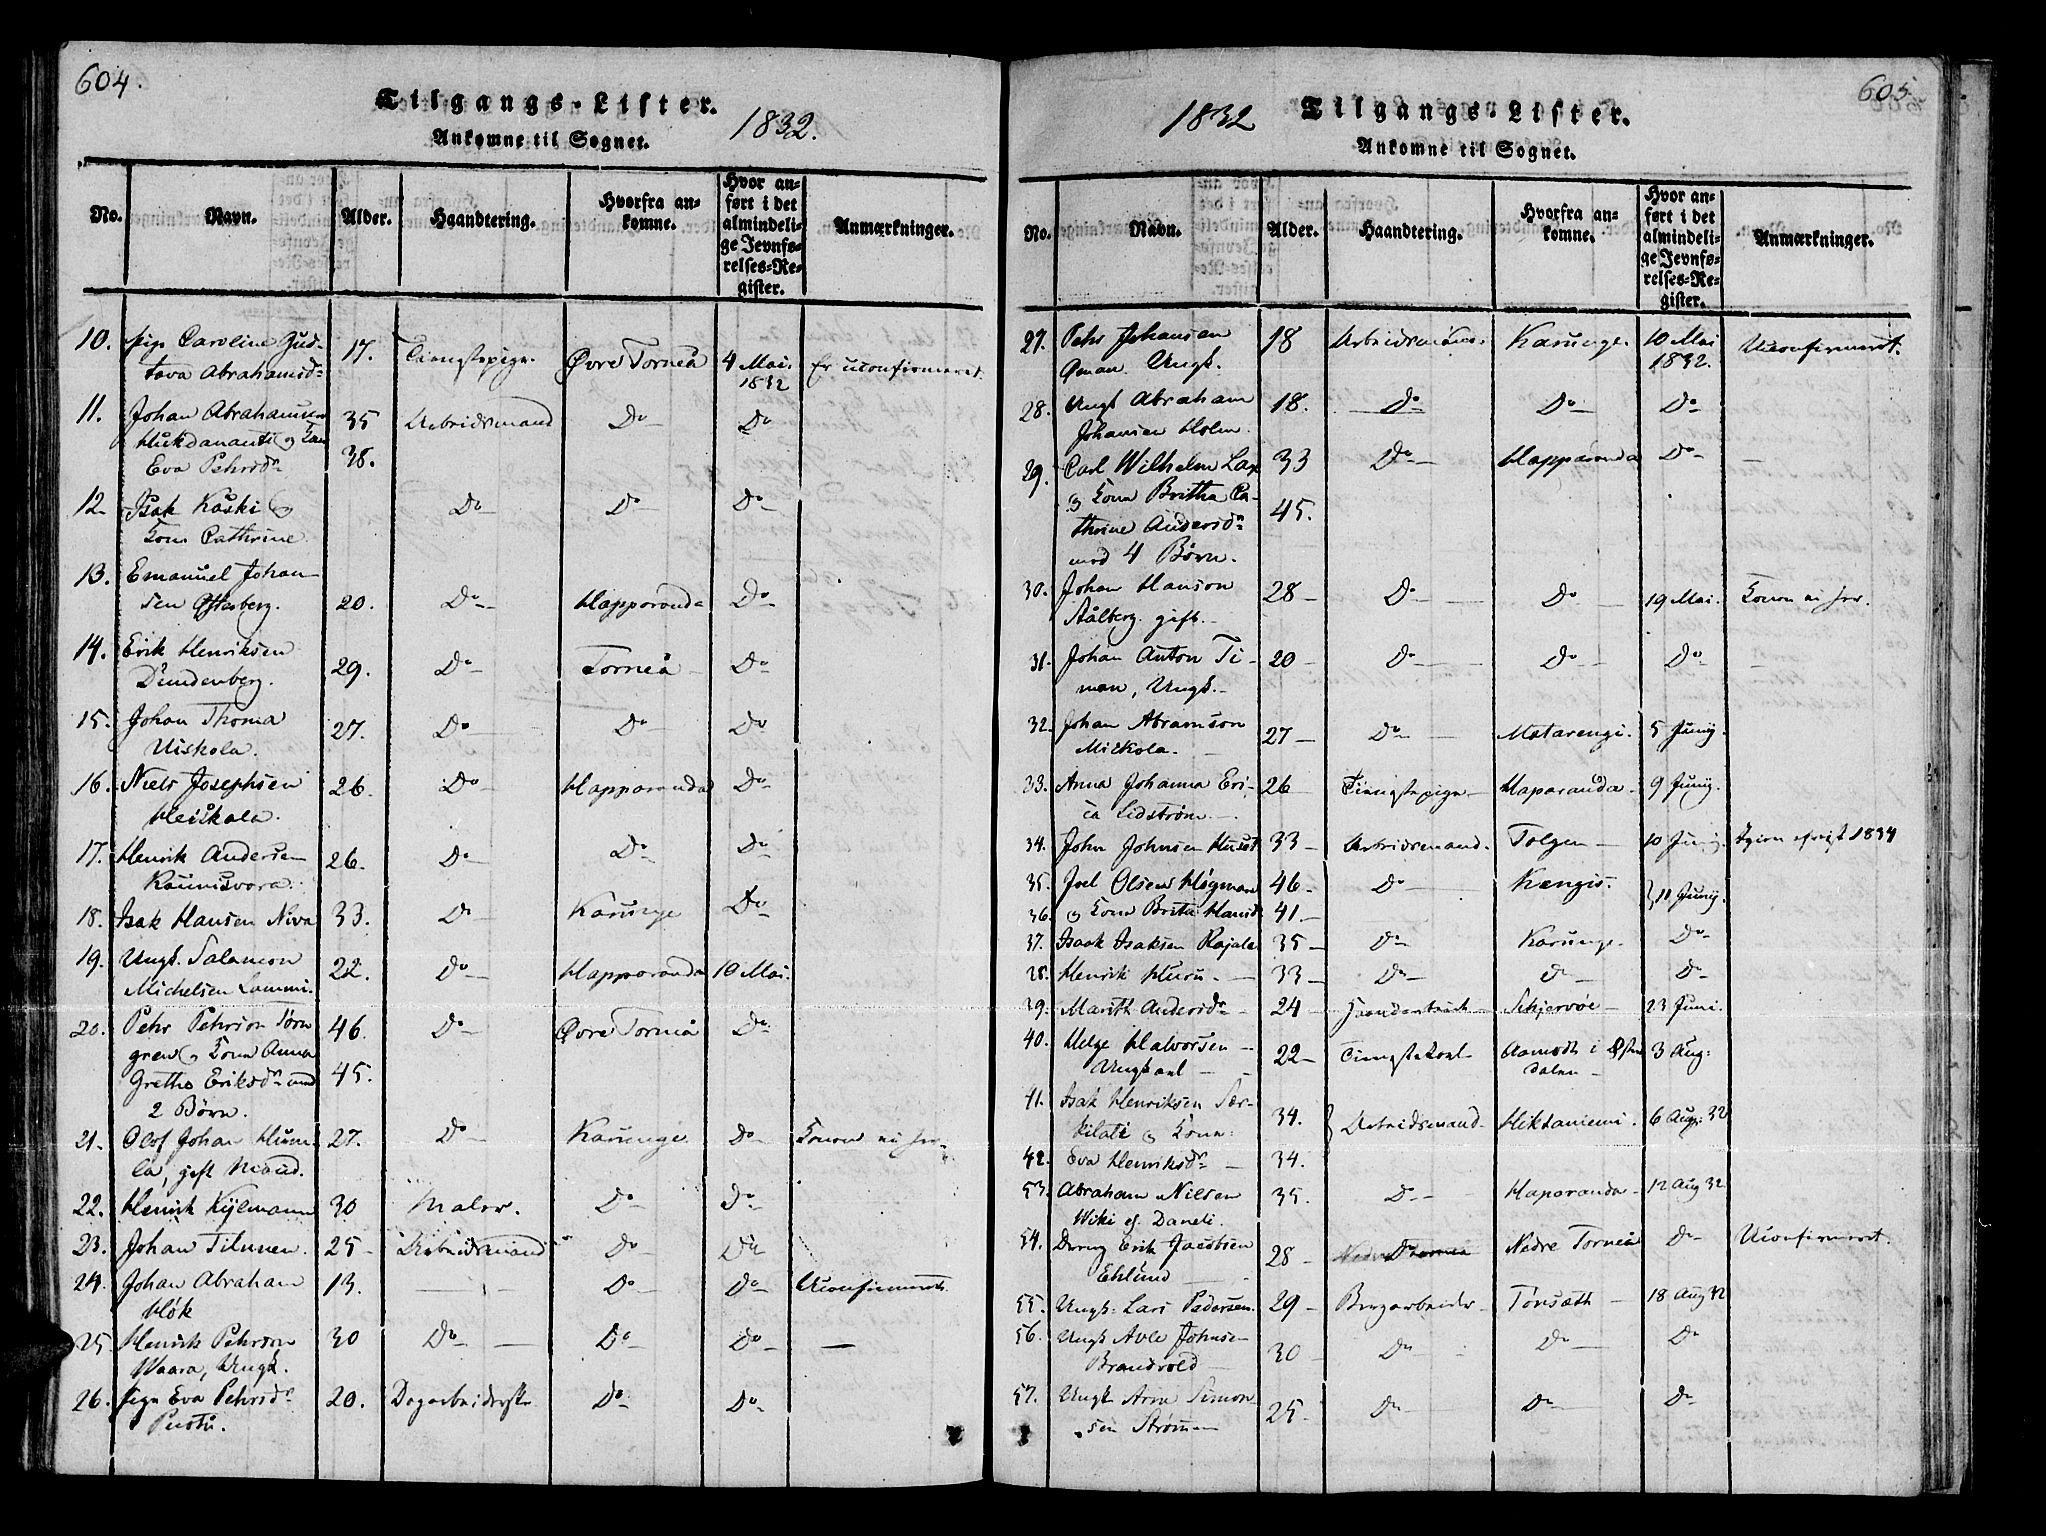 604.
Tilgangs-Lister.
Ankomne til Sognet.
1832.
No.
Navn.
Alder.
Haandtering.
Hvorfra an-
komne.
Hvor an-
ført i det
almindeli-
ge Jevnfø-
relses-Re-
gister.
Anmærkninger.
10. pige Caroline Gus- 17. Tienestepige. Øvre Torneå 4 Mai. Er uconfirmeret.
tava Abrahamsd. 1832
11. Johan Abrahamsen 35 Arbeidsmand Do Do
og Kone
Eva Pehrsdr 38.
12. Isak Koski og Do Do Do
Kone Cathrine.
13. Emanuel Johan-
sen Østerberg. 20. Do Happaranda Do
14. Erik Henriksen
Dundenberg. 29. Do Torneå Do
15. Johan Thoma
Uiskola. 27. Do Do Do
16. Niels Josephsen 26. Do Happaranda Do
Heiskala.
17. Henrik Andersen 26. Do Do Do
Kaunisvara.
18. Isak Hansen Niva 33. Do Karunge Do
19. Ungk. Salamon 22. Do Happaranda 10 Mai.
Michelsen Lammi.
20. Pehr Pehrson Törn 46. Do Øvre Torneå Do
gren og Kone Anna
Grethe Eriksdr med 45.
2 Børn.
21. Olof Johan Hum- 27. Do Karunge Do Konen ei her
la, gift Mand.
22. Henrik Kylmann 30 Maler. Do Do
23. Johan Tilunen. 25 Arbeidsmand Do Do
24. Johan Abraham 13. Do Do Uconfirmeret
Høk
25 Henrik Pehrson 30 Do Do Do
Waara, Ungk.
26. pige Eva Pehrsdr 20. Dagarbeiderske Do Do
605.
1832
Tilgangs-Lister.
Ankomne til Sognet.
No.
Navn.
Alder.
Haandtering.
Hvorfra an-
komne.
Hvor an-
ført i det
almindeli-
ge Jevnfø-
relses-Re-
gister.
Anmærkninger.
27. Pehr Johansen 18 Arbeidsmand. Karunge. 10 Mai Uconfirmeret.
Oman. Ungk. 1832.
28. Ungk Abraham 18. Do Do Do
Johansen Holm.
29. Carl Wilhelm Lax 33 Do Happaranda Do
og Kone Britha Ca-
thrine Andersdr 45.
med 4 Børn.
30. Johan Hanson 28 Do Do 19 Mai. Konen ei her.
Aålberg. gift.
31. Johan Anton Ti- 20 Do Do Do
man, Ungk.
32. Johan Abramson
Mickola. 27 Do Matarengi. 5 Junij.
33. Anna Johanna Eri- 26 Tienestepige Haparanda 9 Junij.
ca Lidstrøm.
34. John Johnsen 33 Arbeidsmand. Tolgen 10 Junij. 1834
35. Joel Olsen Høgman 46 Do Kengis. 11 Junij.
36. og Kone Brita Hansd. 41
37. Isaak Isaksen Rajala 35 Do Karunge. Do
38. Henrik Huru 33 Do Do Do
39. Marith Andersdr 24 Schjervöe 23 Juni.
40. Helge Halvorsen 22 Tienestekarl Aamodt i Østre 3 Aug:
Ungkarl dalen
41. Isak Henriksen Sær- 34. Arbeidsmand Hiktaniemi. 6 Aug: 32
kilati og Kone
42. Eva Henriksdr 34.
53. Abraham Nilsen 35. Do Haparanda 12 Aug 32
Wiki ef. Daneli.
54. Dreng Erik Jacobsen 28 Do Nedre Torneå Do Uconfirmeret.
Eklund
55. Ungk: Lars Pedersen. 29 Bergarbeider Tønsæth 18 Aug 32
56. Ungk Avle Johnsen 30 Do Do Do
Brandvold
57. Ungk Arne Simon- 25. Do Do Do
sen Strømmen